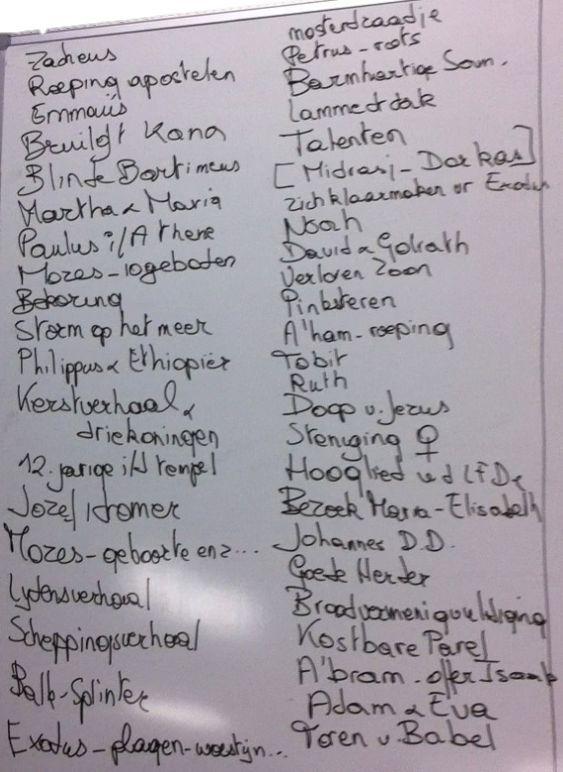 Zacheus
Roeping apostelen
Emmaüs
Bruiloft Kana
Blinde Bartimeus
Martha & Maria
Paulus i/ Athene
Mozes - 10 geboden
Bekoring
Storm op het meer
Philippus & Ethiopiër
Kerstverhaal &
driekoningen
12-jarige i/d tempel
Jozef dromer
Mozes - geboorte enz...
Lydensverhaal
Scheppingsverhaal
Balk-Splinter
Exodus - plagen - woestijn...
mosterdzaadje
Petrus - rots
Barmhartige Sam.
Lamme d dak
Talenten
[Midrasj - Dorkas]
zich klaarmaken Exodus
Noah
David & Goliath
Verloren Zoon
Pinksteren
A'ham - roeping
Tobit
Ruth
Doop v. Jezus
Steniging ♀
Hooglied v d Lfde
Bezoek Maria - Elisabeth
Johannes D.D.
Goede Herder
Broodvermenigvuldiging
Kostbare Parel
A'bram - offer Isaak
Adam & Eva
Toren v. Babel